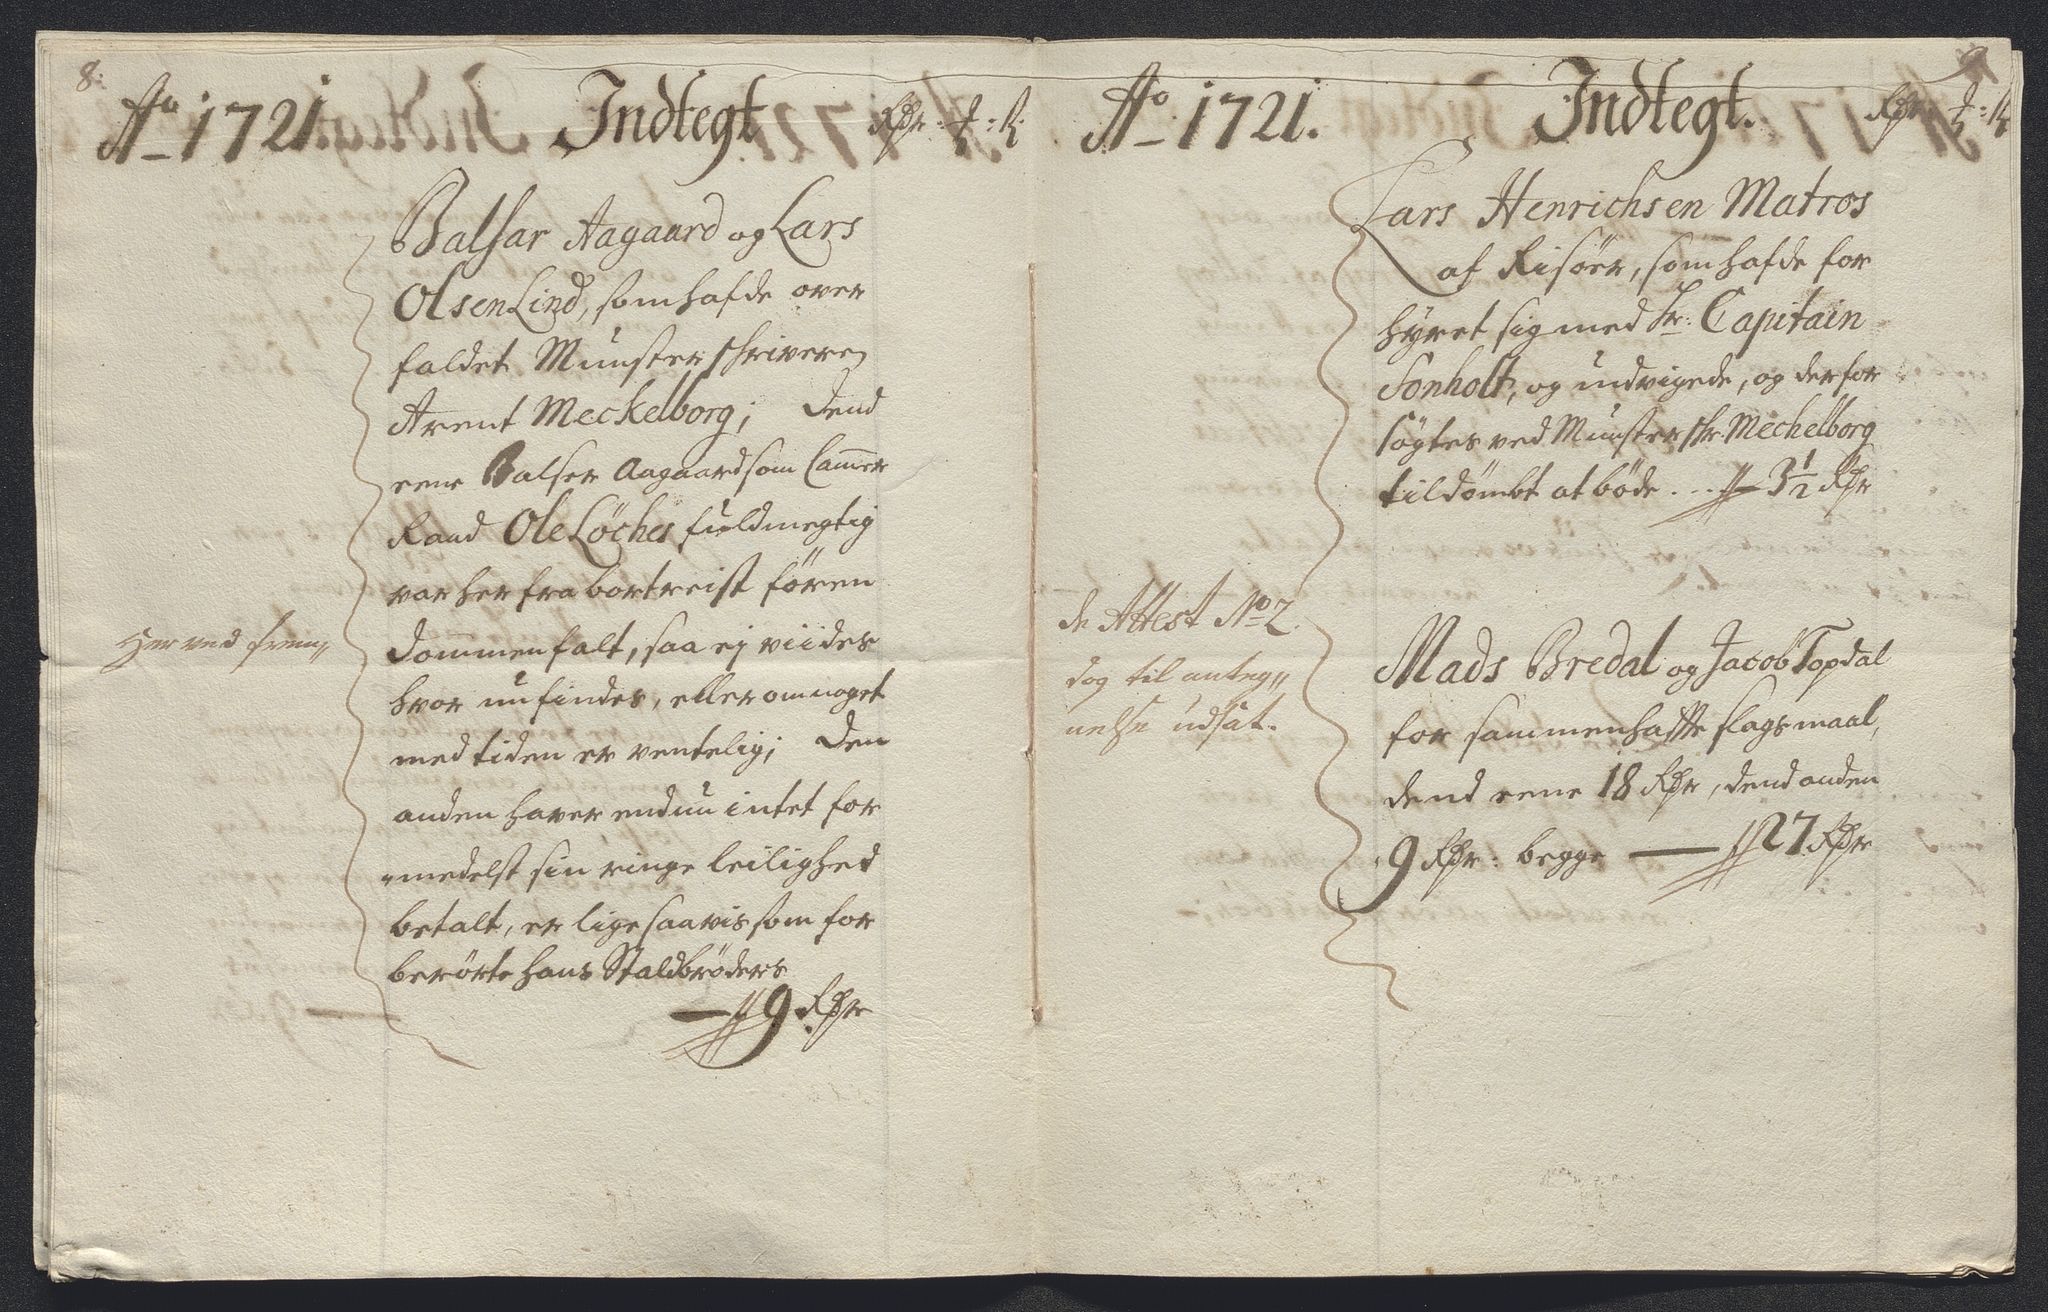 8:
Ao 1721 Indtegt Rdr:
Balsar Aagaard og Lars
Olsen Lind, som hafde over
faldet Munsterskriveren
Arent Meckelborg; Dend
eene Balser Aagaard som Cammer
Raad Ole Löches fuldmegtig
var her fra bortreist fören
Dommen falt, saa ej viides
hvor nu findes, eller om noget
med tiden er ventelig; Den
anden haver endnu intet for
medelst sin ringe leilighed
betalt, er lige saa vis som for
berörte hans Staldbröders
9 Rdr
Her ved frem,,
Ao 1721. Indtegt. Rdr
Lars Henrichsen Matros
af Risöer, som hafde for
hyret sig med Hr: Capitain
Sonholt, og undvigede, og derfor
sögtes ved Munsterskr: Mechelborg
tildömbt at böde . . . 3 1/2 Rdr
de Attest No 2.
dog til anteg,,
nelse udsat.
Mads Bredal og Jacob Topdal
for sammenhafte slagsmaal,
dend eene 18 Rdr, dend anden
9 Rdr: begge — 27 Rdr